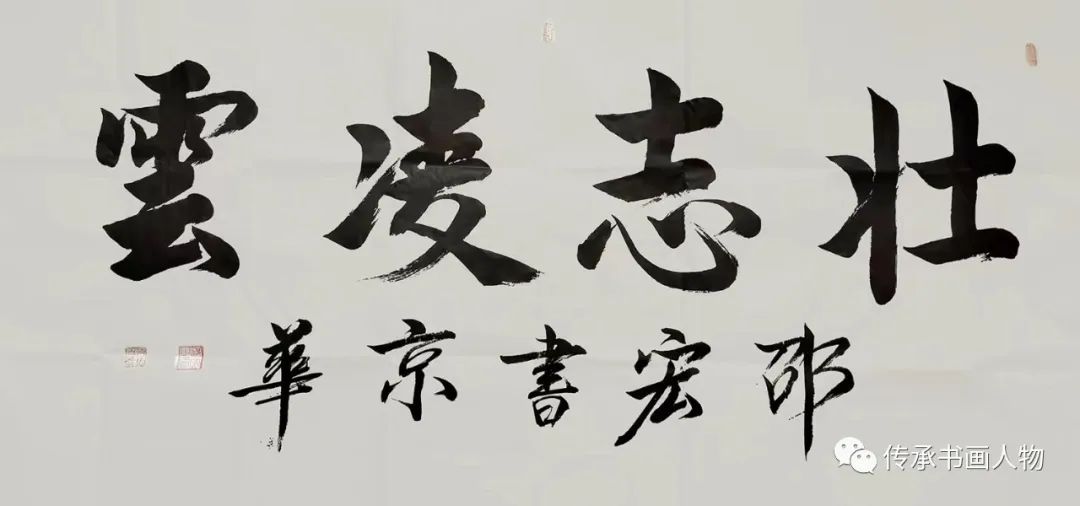 壮志凌雲
邵宏書京華
传承书画人物